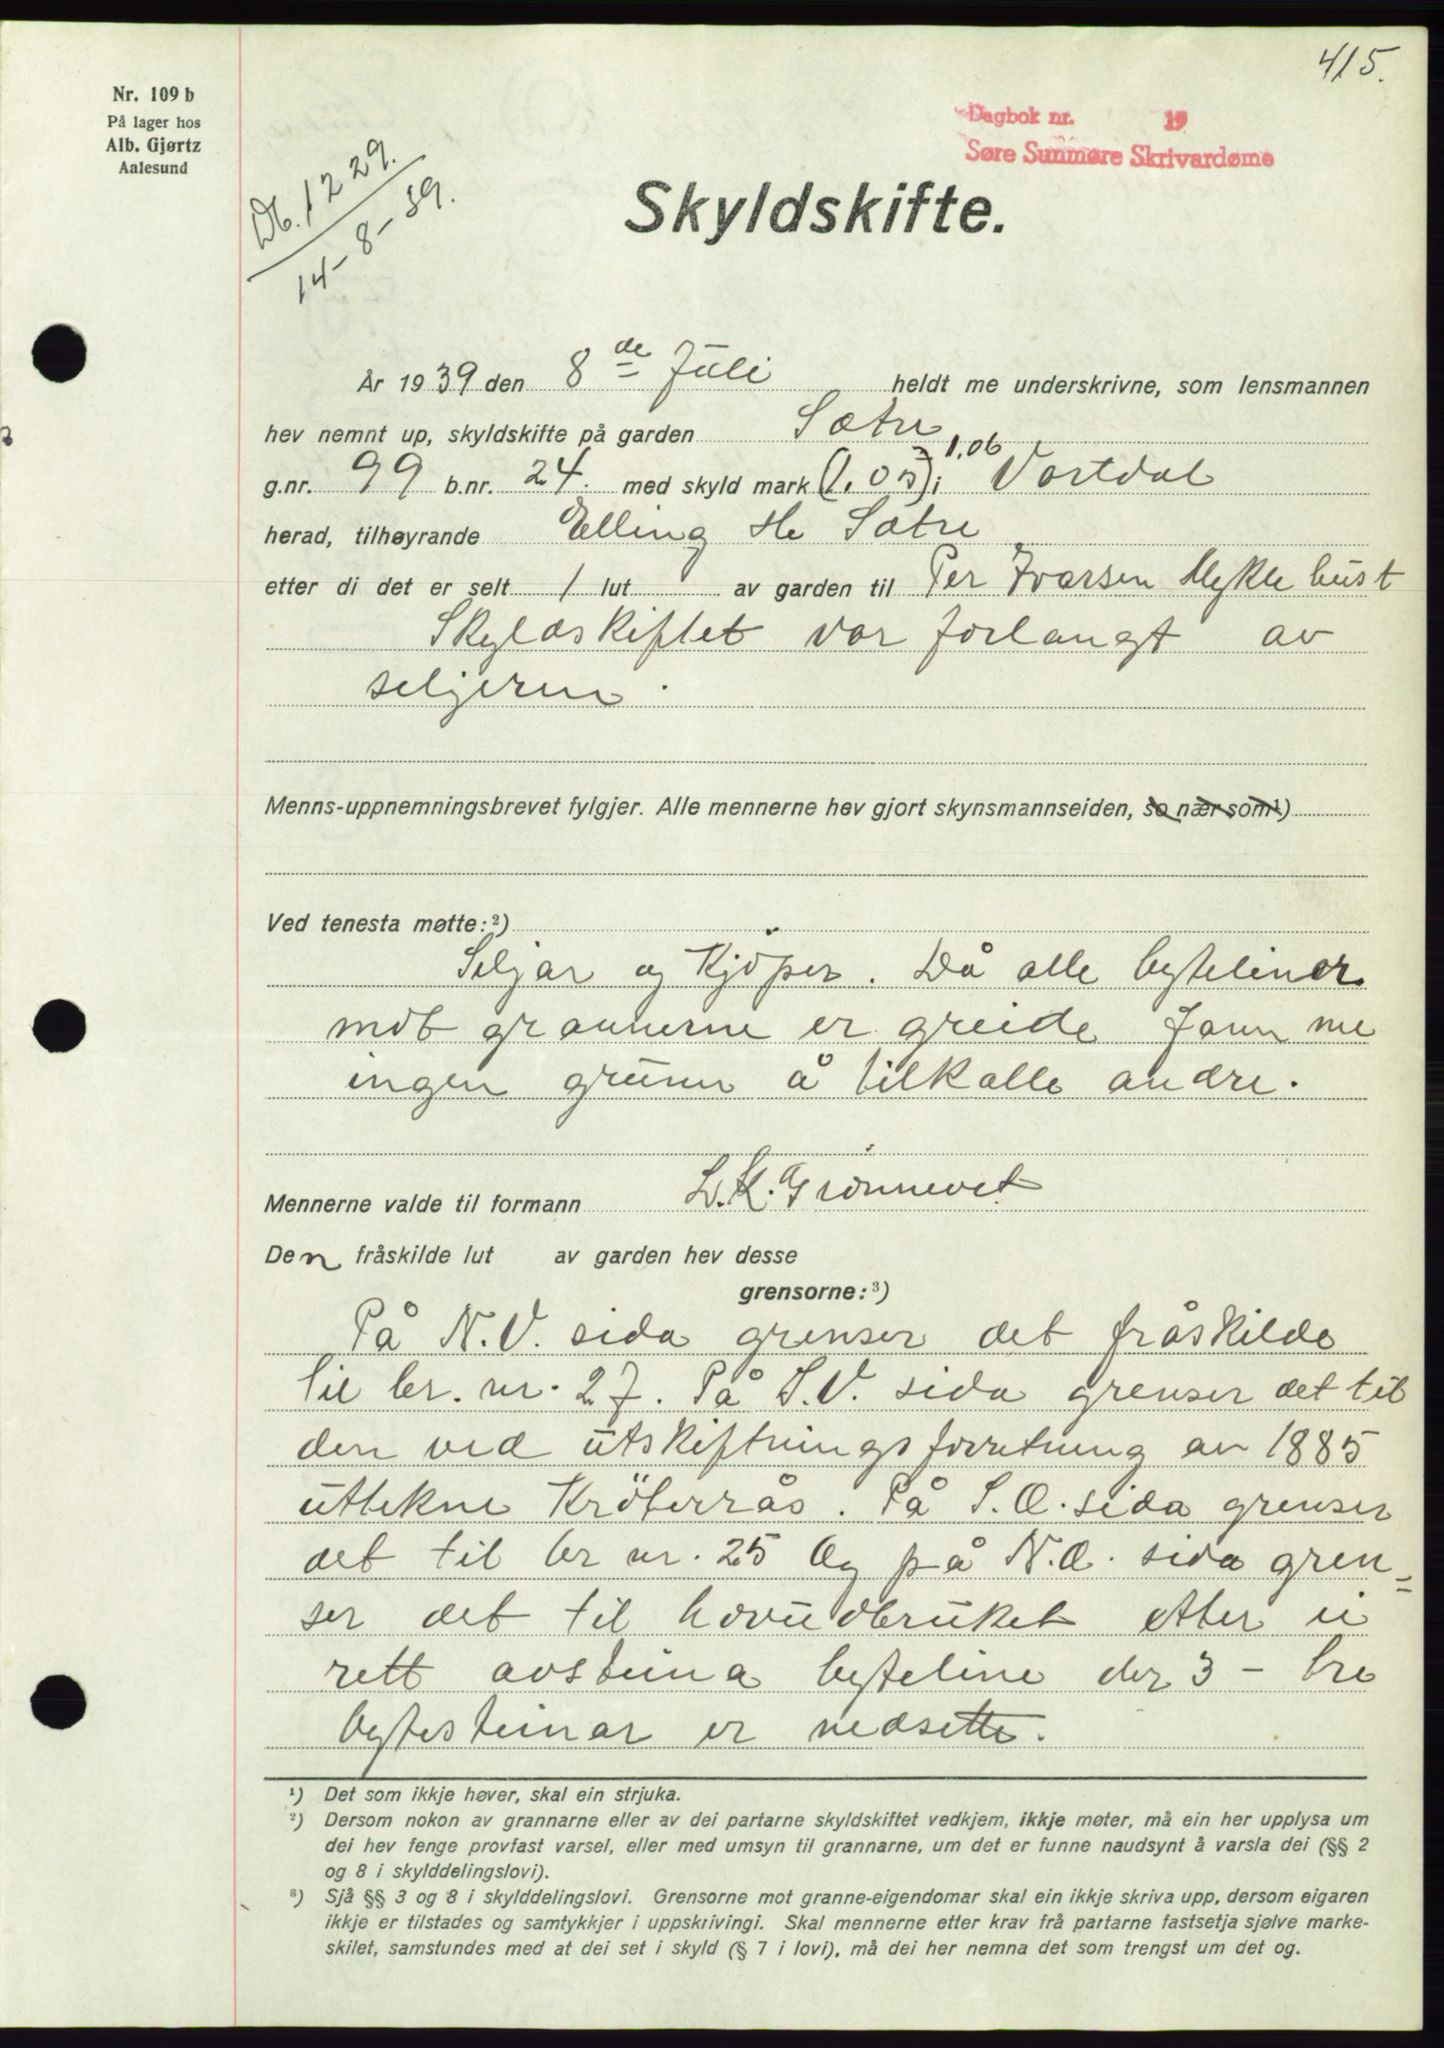 415.
Nr. 109 b
På lager hos
Alb. Gjørtz
Aalesund
Dagbok nr. 19
Søre Sunmøre Skrivardøme
Db. 1229.
14-8-39.
Skyldskifte.
År 1939 den 8de Juli heldt me underskrivne, som lensmannen
hev nemnt up, skyldskifte på garden Sætre
1,06
g.nr. 99 b.nr. 24. med skyld mark (1.05) i Vartdal
herad, tilhøyrande Elling He Sætre
etter di det er selt 1 lut av garden til Per Ivarsen Myklebust
Skyldskiftet var forlangt av
seljeren.
Menns-uppnemningsbrevet fylgjer. Alle mennerne hev gjort skynsmannseiden, so nær som¹)
Ved tenesta møtte: ²)
Seljar og Kjöper. Då alle byteliner
mot grannerne er greide fann me
ingen grunn å tilkalle andre.
Mennerne valde til formann L.K. Grønnevet
Den fråskilde lut av garden hev desse
grensorne: ³)
På N.V. sida grenser det fråskilde
til br. nr. 27. På S.V. sida grenser det til
den ved utskiftningsforretning av 1885
uttekne Kröterrås. På S.O. sida grenser
det til br nr. 25 Og på N.O. sida gren=
ser det til hovudbruket etter ei
rett avsteina byteline der 3 - tre
bytesteinar er nedsette.
¹) Det som ikkje høver, skal ein strjuka.
²) Dersom nokon av grannarne eller av dei partarne skyldskiftet vedkjem, ikkje møter, må ein her upplysa um
dei hev fenge provfast varsel, eller med umsyn til grannarne, um det er funne naudsynt å varsla dei (§§ 2
og 8 i skylddelingslovi).
³) Sjå §§ 3 og 8 i skylddelingslovi. Grensorne mot granne-eigendomar skal ein ikkje skriva upp, dersom eigaren
ikkje er tilstades og samtykkjer i uppskrivingi. Skal mennerne etter krav frå partarne fastsetja sjølve marke-
skilet, samstundes med at dei set i skyld (§ 7 i lovi), må dei her nemna det som trengst um det og.